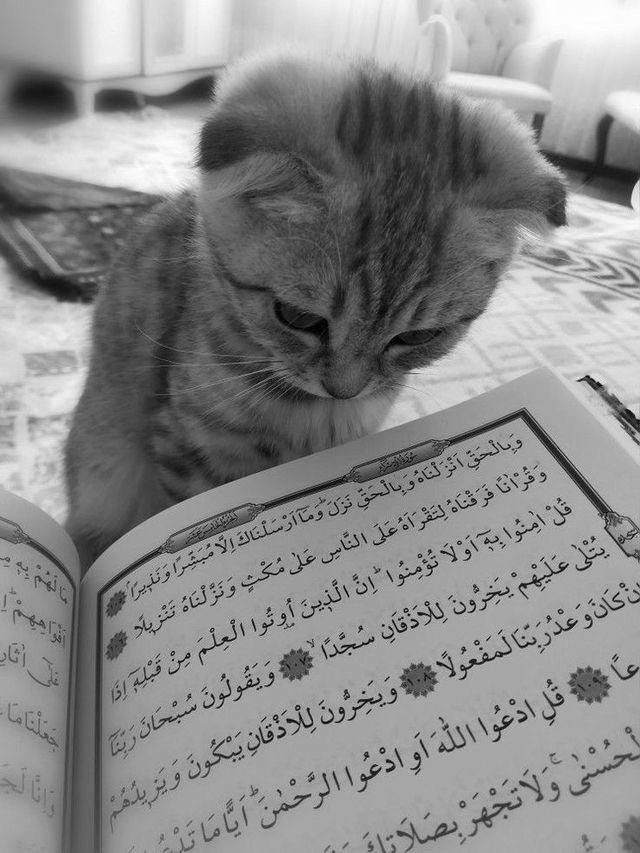 وَبِالْحَقِّ اَنْزَلْنَاهُ وَبِالْحَقِّ نَزَلَۜ وَمَٓا اَرْسَلْنَاكَ اِلَّا مُبَشِّرًا وَنَذ۪يرًاۢ ١٠٥
وَقُرْاٰنًا فَرَقْنَاهُ لِتَقْرَاَهُ عَلَى النَّاسِ عَلٰى مُكْثٍ وَنَزَّلْنَاهُ تَنْز۪يلًا ١٠٦
قُلْ اٰمِنُوا بِه۪ٓ اَوْ لَا تُؤْمِنُواۜ اِنَّ الَّذ۪ينَ اُو۫تُوا الْعِلْمَ مِنْ قَبْلِه۪ٓ اِذَا
يُتْلٰى عَلَيْهِمْ يَخِرُّونَ لِلْاَذْقَانِ سُجَّدًاۙ ١٠٧ وَيَقُولُونَ سُبْحَانَ رَبِّنَٓا
اِنْ كَانَ وَعْدُ رَبِّنَا لَمَفْعُولًا ١٠٨ وَيَخِرُّونَ لِلْاَذْقَانِ يَبْكُونَ وَيَز۪يدُهُمْ
١٠٩ قُلِ ادْعُوا اللّٰهَ اَوِ ادْعُوا الرَّحْمٰنَۜ اَيًّا مَا
الْحُسْنٰىۚ وَلَا تَجْهَرْ بِصَلَاتِكَ
مَا لَهُمْ بِه۪
اَفْوَاهِهِمْۜ
عَلٰٓى
جَعَلْنَا مَا
وَاِنَّا